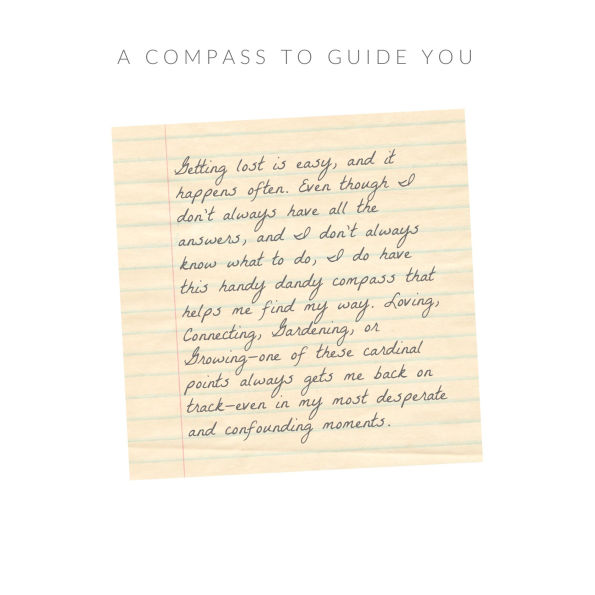 A COMPASS TO GUIDE YOU
Getting lost is easy, and it
happens often. Even though I
don't always have all the
answers, and I don't always
know what to do, I do have
this handy dandy compass that
helps me find my way. Loving,
Connecting, Gardening, or
Growing—one of these cardinal
points always gets me back on
track—even in my most desperate
and confounding moments.